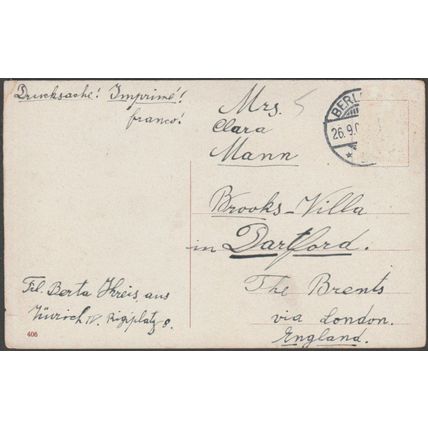 Drucksache! Imprimé!
franco!
Mrs.
Clara
Mann
BERLIN
26.9.0
Brooks-Villa
in Dartford.
The Brents
via London.
England.
Frl. Berta Kreis aus
Zürich IV. Rigiplatz
406